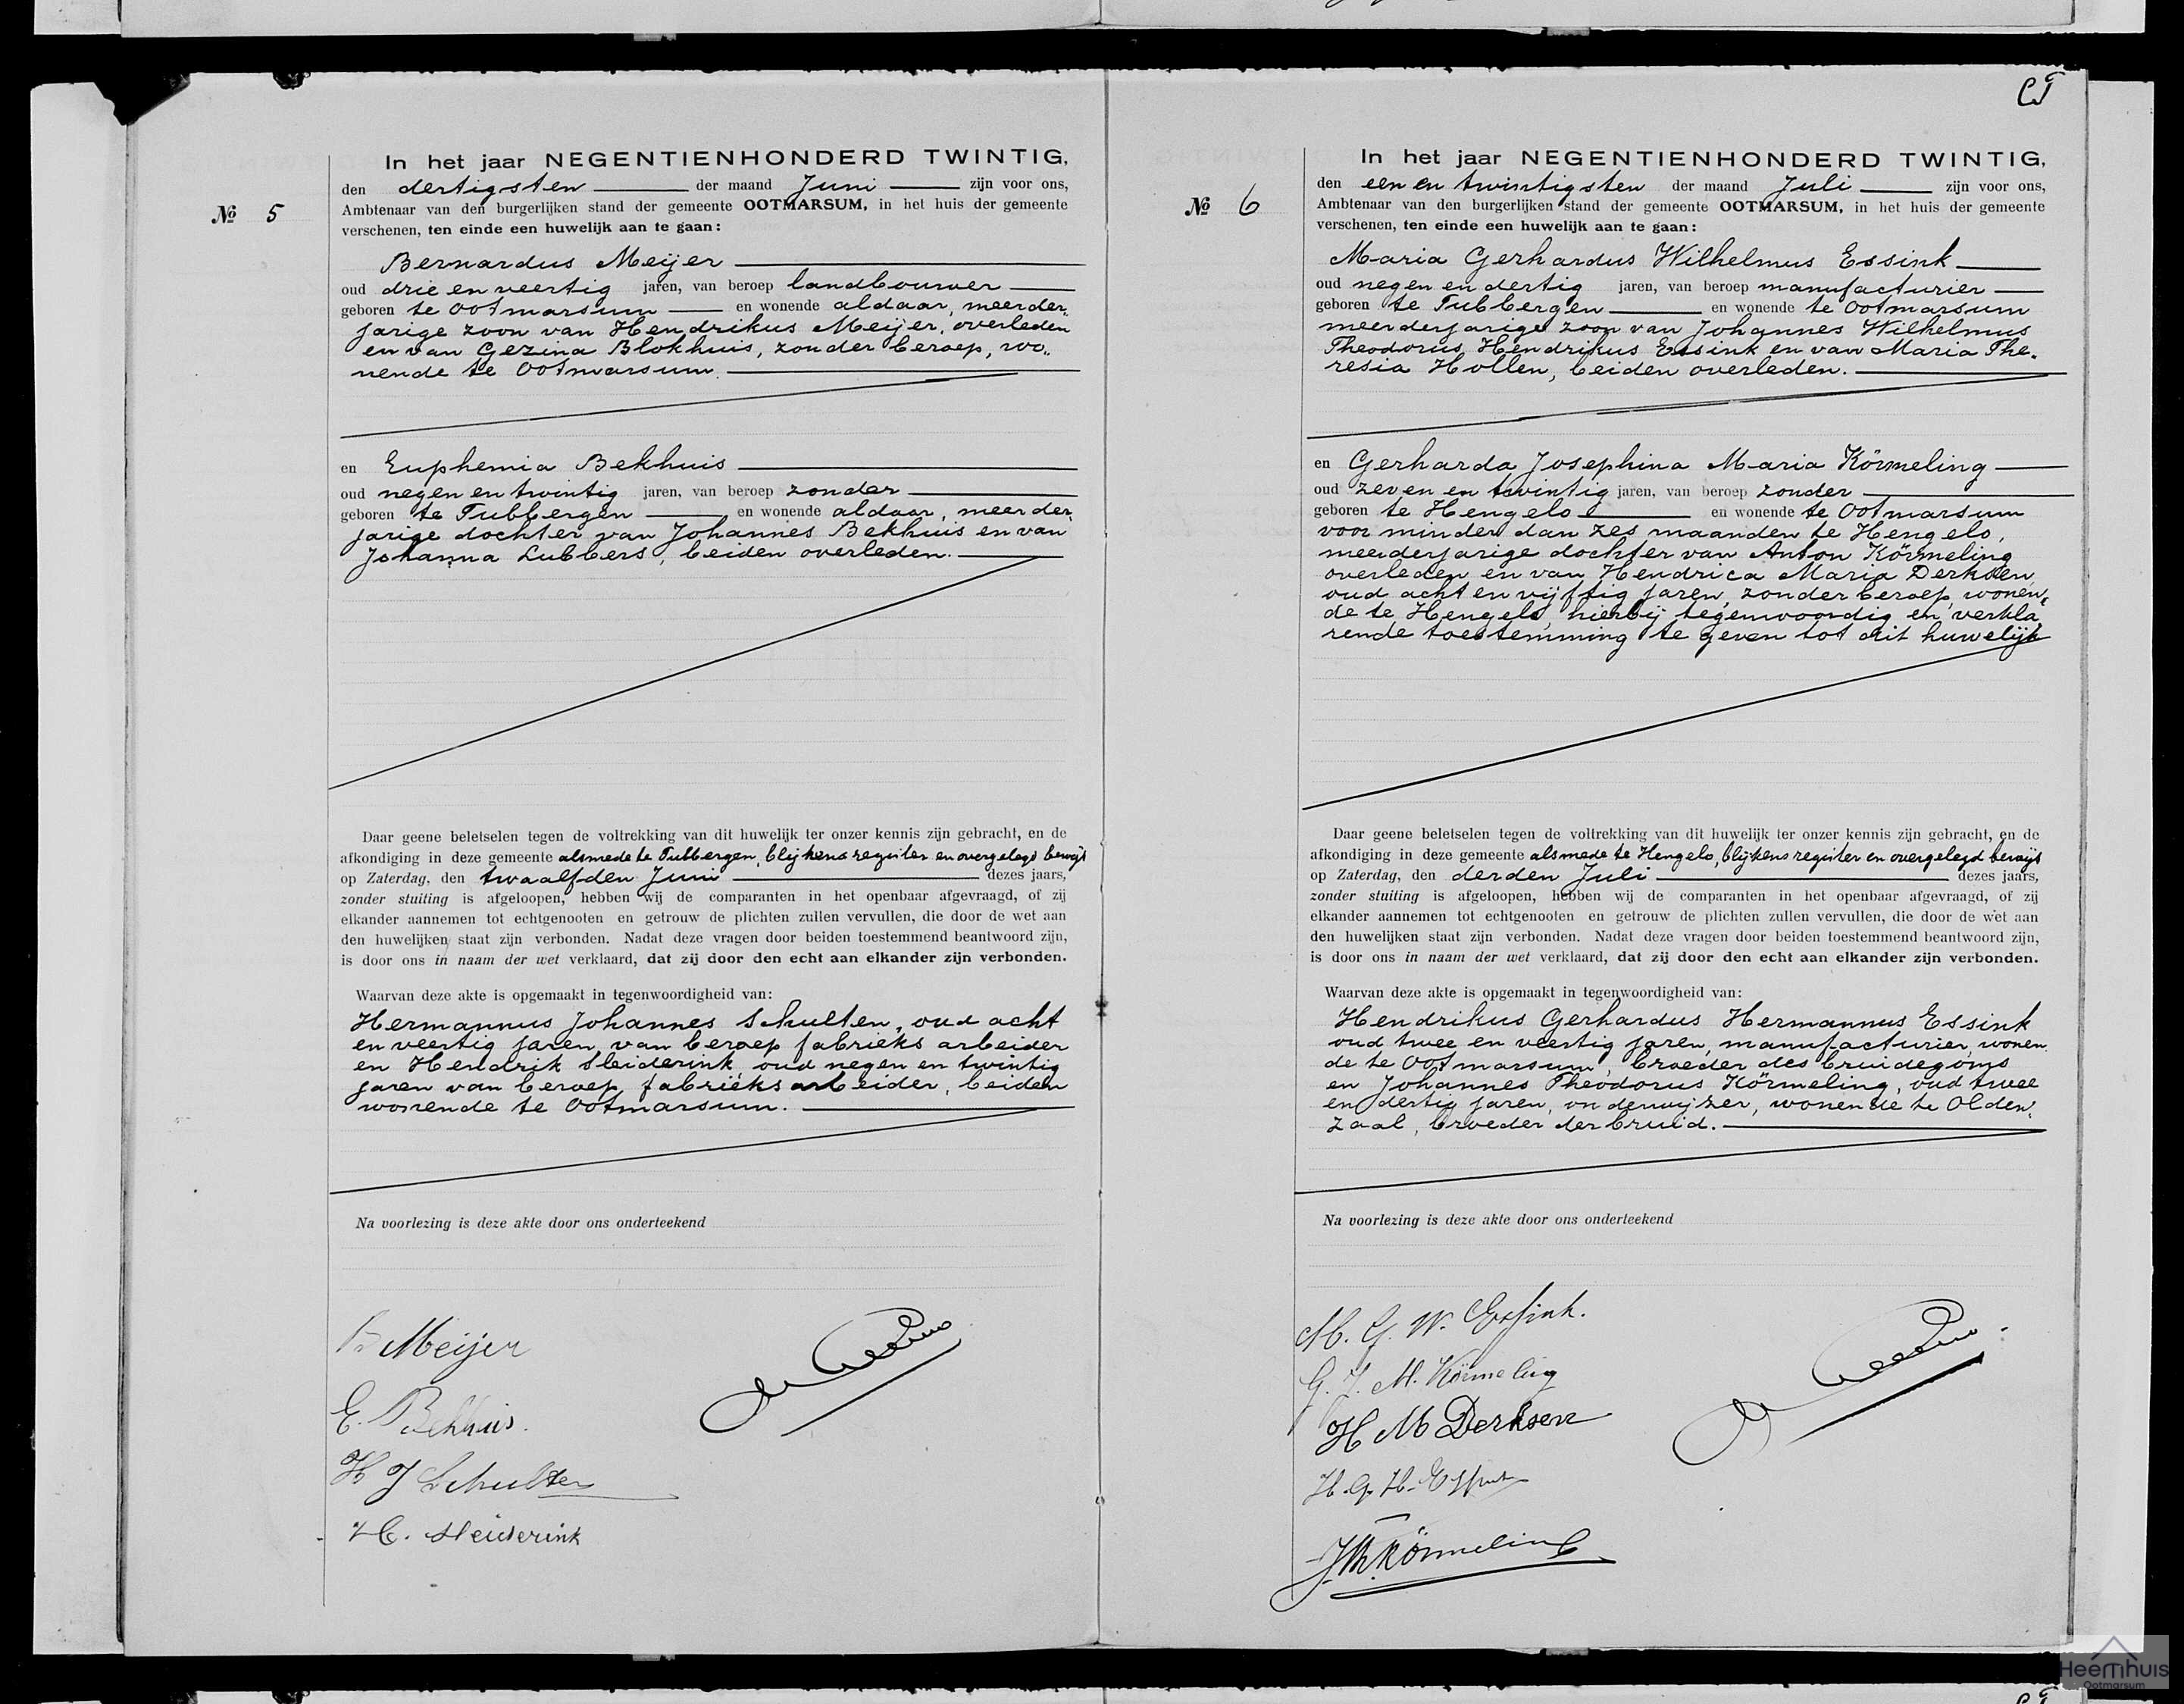 In het jaar NEGENTIENHONDERD TWINTIG,
den dertigsten der maand Juni zijn voor ons,
Nº 5
Ambtenaar van den burgerlijken stand der gemeente OOTMARSUM, in het huis der gemeente
verschenen, ten einde een huwelijk aan te gaan:
Bernardus Meijer
oud drie en veertig jaren, van beroep landbouwer
geboren te Ootmarsum en wonende aldaar, meerder„
jarige zoon van Hendrikus Meijer, overleden
en van Gezina Blokhuis, zonder beroep, wo„
nende te Ootmarsum.
en Euphemia Bekhuis
oud negen en twintig jaren, van beroep zonder
geboren te Tubbergen en wonende aldaar, meerder„
jarige dochter van Johannes Bekhuis en van
Johanna Lubbers, beiden overleden.
Daar geene beletselen tegen de voltrekking van dit huwelijk ter onzer kennis zijn gebracht, en de
afkondiging in deze gemeente alsmede te Tubbergen, blijkens register en overgelegd bewijs
op Zaterdag, den twaalfden Juni dezes jaars,
zonder stuiting is afgeloopen, hebben wij de comparanten in het openbaar afgevraagd, of zij
elkander aannemen tot echtgenooten en getrouw de plichten zullen vervullen, die door de wet aan
den huwelijken staat zijn verbonden. Nadat deze vragen door beiden toestemmend beantwoord zijn,
is door ons in naam der wet verklaard, dat zij door den echt aan elkander zijn verbonden.
Waarvan deze akte is opgemaakt in tegenwoordigheid van:
Hermannus Johannes Schulten, oud acht
en veertig jaren, van beroep fabrieks arbeider
en Hendrik Sleiderink, oud negen en twintig
jaren van beroep fabrieks arbeider, beiden
wonende te Ootmarsum.
Na voorlezing is deze akte door ons onderteekend
B Meijer
E. Bekhuis.
H J Schulten
H. Sleiderink
CT
In het jaar NEGENTIENHONDERD TWINTIG,
den een en twintigsten der maand Juli zijn voor ons,
Nº 6
Ambtenaar van den burgerlijken stand der gemeente OOTMARSUM, in het huis der gemeente
verschenen, ten einde een huwelijk aan te gaan:
Maria Gerhardus Wilhelmus Essink
oud negen en dertig jaren, van beroep manufacturier
geboren te Tubbergen en wonende te Ootmarsum
meerderjarige zoon van Johannes Wilhelmus
Theodorus Hendrikus Essink en van Maria The„
resia Hollen, beiden overleden.
en Gerharda Josephina Maria Körmeling
oud zeven en twintig jaren, van beroep zonder
geboren te Hengelo en wonende te Ootmarsum
voor minder dan zes maanden te Hengelo,
meerderjarige dochter van Anton Körmeling
overleden en van Hendrica Maria Derksen,
oud acht en vijftig jaren, zonder beroep, wonen„
de te Hengelo, hierbij tegenwoordig en verkla„
rende toestemming te geven tot dit huwelijk
Daar geene beletselen tegen de voltrekking van dit huwelijk ter onzer kennis zijn gebracht, en de
afkondiging in deze gemeente alsmede te Hengelo, blijkens register en overgelegd bewijs
op Zaterdag, den derden Juli dezes jaars,
zonder stuiting is afgeloopen, hebben wij de comparanten in het openbaar afgevraagd, of zij
elkander aannemen tot echtgenooten en getrouw de plichten zullen vervullen, die door de wet aan
den huwelijken staat zijn verbonden. Nadat deze vragen door beiden toestemmend beantwoord zijn,
is door ons in naam der wet verklaard, dat zij door den echt aan elkander zijn verbonden.
Waarvan deze akte is opgemaakt in tegenwoordigheid van:
Hendrikus Gerhardus Hermannus Essink
oud twee en veertig jaren, manufacturier, wonen„
de te Ootmarsum, broeder des bruidegoms
en Johannes Theodorus Körmeling, oud twee
en dertig jaren, onderwijzer, wonende te Olden„
zaal, broeder der bruid.
Na voorlezing is deze akte door ons onderteekend
M. G. W. Essink.
G. J. M. Körmeling
H M Derksen
H. G. H. Essink
J.Th. Körmeling
Heemhuis
Ootmarsum